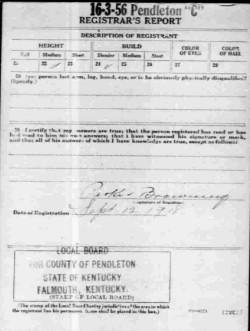 16-3-56 Pendleton
REGISTRAR'S REPORT
DESCRIPTION OF REGISTRANT
HEIGHT BUILD COLOR OF EYES COLOR OF HAIR
Tall Medium Short Slender Medium Stout
21 22 23 24 25 26 27 28
29 Has person lost arm, leg, hand, eye, or is he obviously physically disqualified?
(Specify.)
30 I certify that my answers are true; that the person registered has read or has
had read to him his own answers; that I have witnessed his signature or mark,
and that all of his answers of which I have knowledge are true, except as follows:
Browning
Date of Registration Sept 12 1918
LOCAL BOARD
FOR COUNTY OF PENDLETON
STATE OF KENTUCKY
FALMOUTH, KENTUCKY.
(STAMP OF LOCAL BOARD)
(The stamp of the Local Board having jurisdiction of the area in which
the registrant has his permanent home shall be placed in this box.)